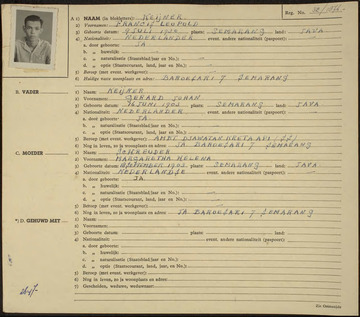 Reg. No.
A 1) NAAM (in blokletters): KEIJNER
2) Voornamen: FRANCIS LEOPOLD
3) Geboorte datum: 9 JULI plaats: SEMARANG land: JAVA
4) Nationaliteit: NEDERLANDER event. andere nationaliteit (paspoort):
a. door geboorte: JA
b. „ huwelijk:
c. „ naturalisatie (Staatsblad/jaar en No.):
d. „ optie (Staatscourant, land, jaar en No.):
5) Beroep (met event. werkgever):
6) Huidig voor woonplaats en adres: BAROESARI 7 SEMARANG
B. VADER
1) KEIJNER
2) Voornamen: GERARD JOHAN
3) Geboorte datum: 16 JUNI plaats: SEMARANG land: JAVA
4) Nationaliteit: NEDERLANDER event. andere nationaliteit (paspoort):
a. door geboorte: JA
b. „ huwelijk:
c. „ naturalisatie (Staatsblad/jaar en No.):
d. „ optie (Staatscourant, land, jaar en No.):
5) Beroep (met event. werkgever): AMBT. DJAWATAN KERETA API
6) Nog in leven, zo ja woonplaats en adres: JA BAROESARI 7 SEMARANG
C. MOEDER
2) Voornamen: MARGARETHA HELENA
3) Geboorte datum: plaats: SEMARANG land: JAVA
4) Nationaliteit: NEDERLANDSE event. andere nationaliteit (paspoort):
a. door geboorte: JA
b. „ huwelijk:
c. „ naturalisatie (Staatsblad/jaar en No.):
d. „ optie (Staatscourant, land, jaar en No.):
5) Beroep (met event. werkgever):
6) Nog in leven, zo ja woonplaats en adres: JA BAROESARI 7 SEMARANG
*) D. GEHUWD MET
1)
2) Voornamen:
3) Geboorte datum: plaats: land:
4) Nationaliteit: event. andere nationaliteit (paspoort):
a. door geboorte:
b. „ huwelijk:
c. „ naturalisatie (Staatsblad/jaar en No.):
d. „ optie (Staatscourant, land, jaar en No.):
5) Beroep (met event. werkgever):
6) Nog in leven, zo ja woonplaats en adres:
7) Gescheiden, weduwe, weduwnaar:
Zie Ommezijde